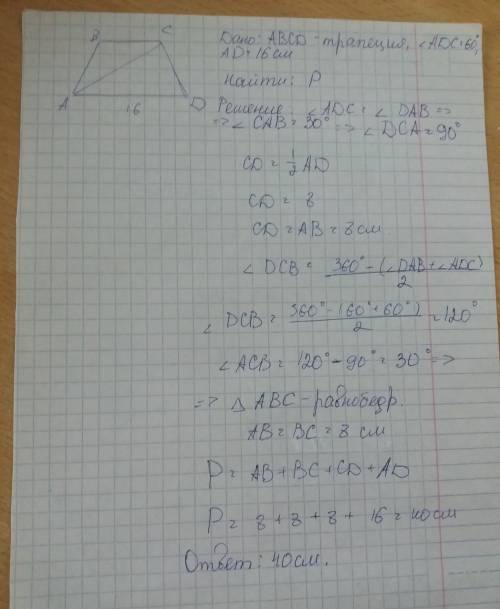 B C
A D
16
Дано: ABCD - трапеция, ∠ADC=60°,
AD=16см
Найти: P
Решение: ∠ADC = ∠DAB =>
=> ∠CAB = 30° => ∠DCA = 90°
CD = 1/2 AD
CD = 8
CD = AB = 8 см
∠DCB = 360° - (∠DAB + ∠ADC) / 2
∠DCB = 360° - (60° + 60°) / 2 = 120°
∠ACB = 120° - 90° = 30° =>
=> △ABC - равнобедр.
AB = BC = 8 см
P = AB + BC + CD + AD
P = 8 + 8 + 8 + 16 = 40см
Ответ: 40см.